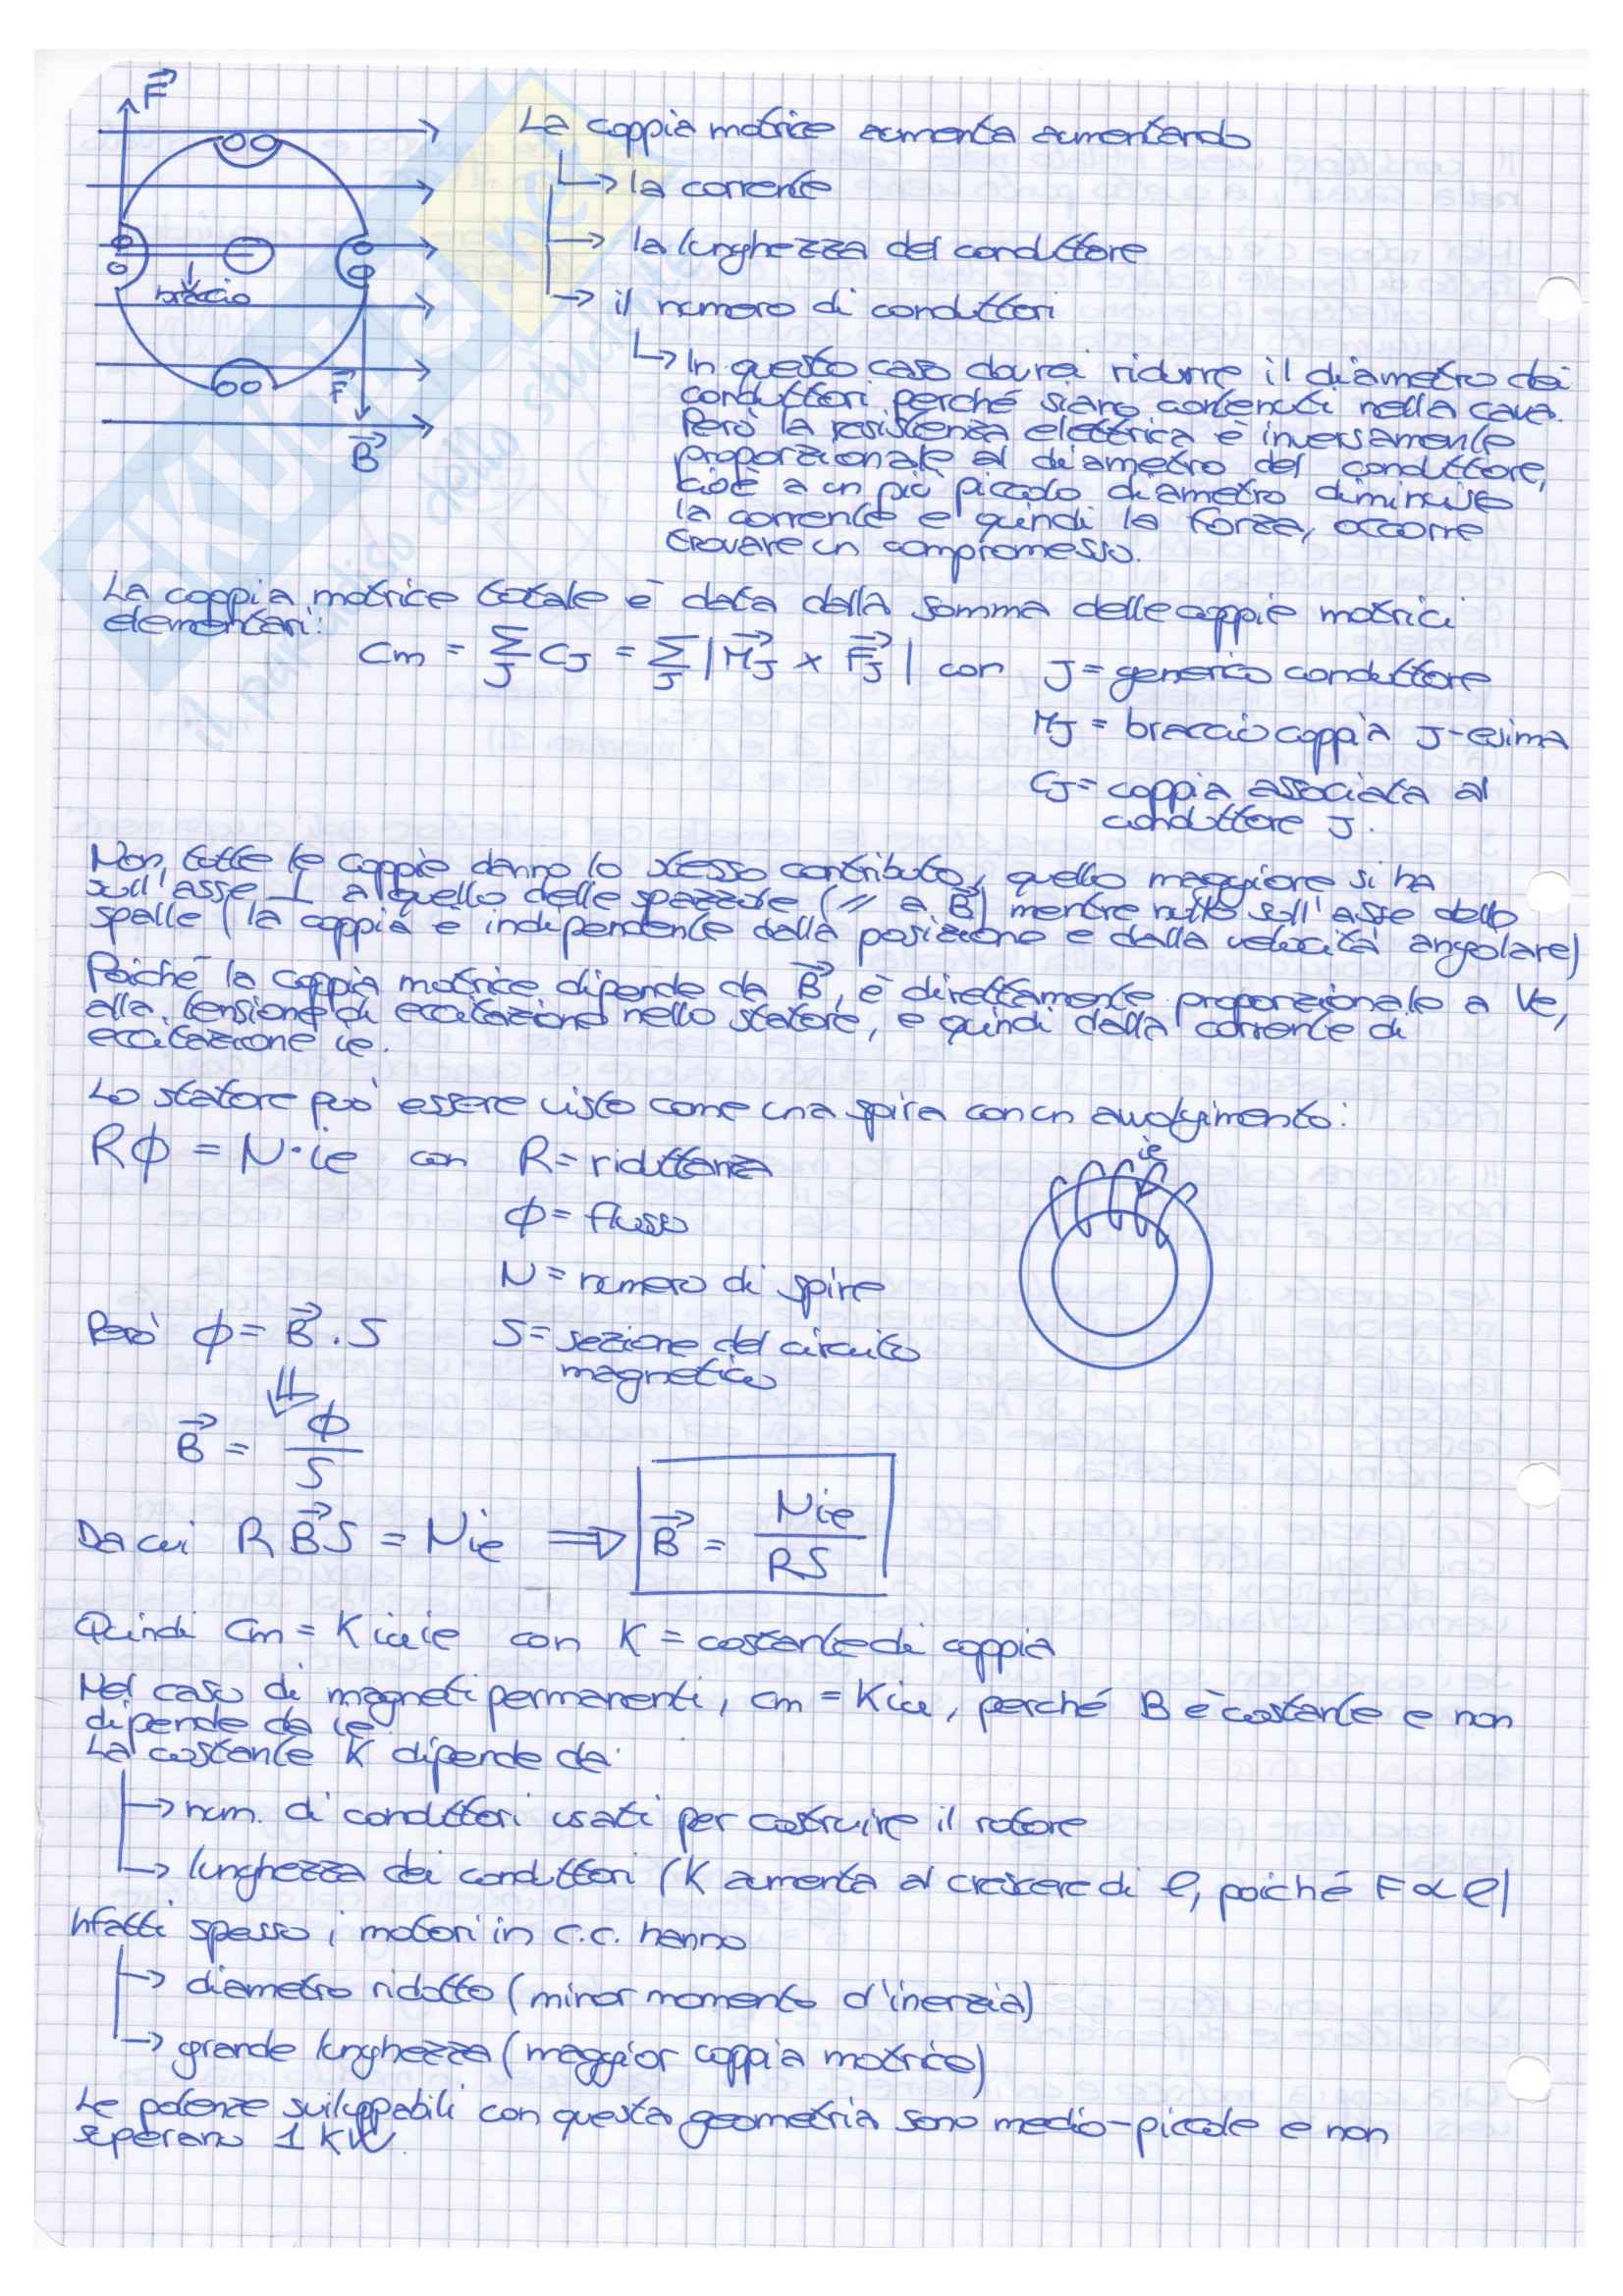 F
La coppia motrice aumenta aumentando
↳ la corrente
→ la lunghezza del conduttore
braccio
→ il numero di conduttori
↳ In questo caso dovrei ridurre il diametro dei
F
conduttori perché siano contenuti nella cava.
B
Però la resistenza elettrica è inversamente
proporzionale al diametro del conduttore,
cioè a un più piccolo diametro diminuisce
la corrente e quindi la forza, occorre
trovare un compromesso.
La coppia motrice totale è data dalla somma delle coppie motrici
elementari:
Cm = Σ_J C_J = Σ_J |M_J × F_J| con J = generico conduttore
M_J = braccio coppia J-esima
C_J = coppia associata al
conduttore J.
Non tutte le coppie danno lo stesso contributo, quello maggiore si ha
sull'asse ⊥ a quello delle spazzole (// a B) mentre nullo sull'asse delle
spalle (la coppia è indipendente dalla posizione e dalla velocità angolare)
Poiché la coppia motrice dipende da B, è direttamente proporzionale a Ve,
alla tensione di eccitazione nello statore, e quindi dalla corrente di
eccitazione ie.
Lo statore può essere visto come una spira con un avvolgimento:
RΦ = N·ie con R = riduttanza
ie
Φ = flusso
N = numero di spire
Però Φ = B · S S = sezione del circuito
magnetico
⇓
B = Φ/S
Da cui RBS = Nie ⇒ B = Nie/RS
Quindi Cm = K ia ie con K = costante di coppia
Nel caso di magneti permanenti, cm = K ia, perché B è costante e non
dipende da ie.
La costante K dipende da:
→ num. di conduttori usati per costruire il rotore
→ lunghezza dei conduttori (K aumenta al crescere di l, poiché F ∝ l)
Infatti spesso i motori in c.c. hanno
→ diametro ridotto (minor momento d'inerzia)
→ grande lunghezza (maggior coppia motrice)
Le potenze sviluppabili con questa geometria sono medio-piccole e non
superano 1 KW.
SKUOLA.net
il paradiso dello studente